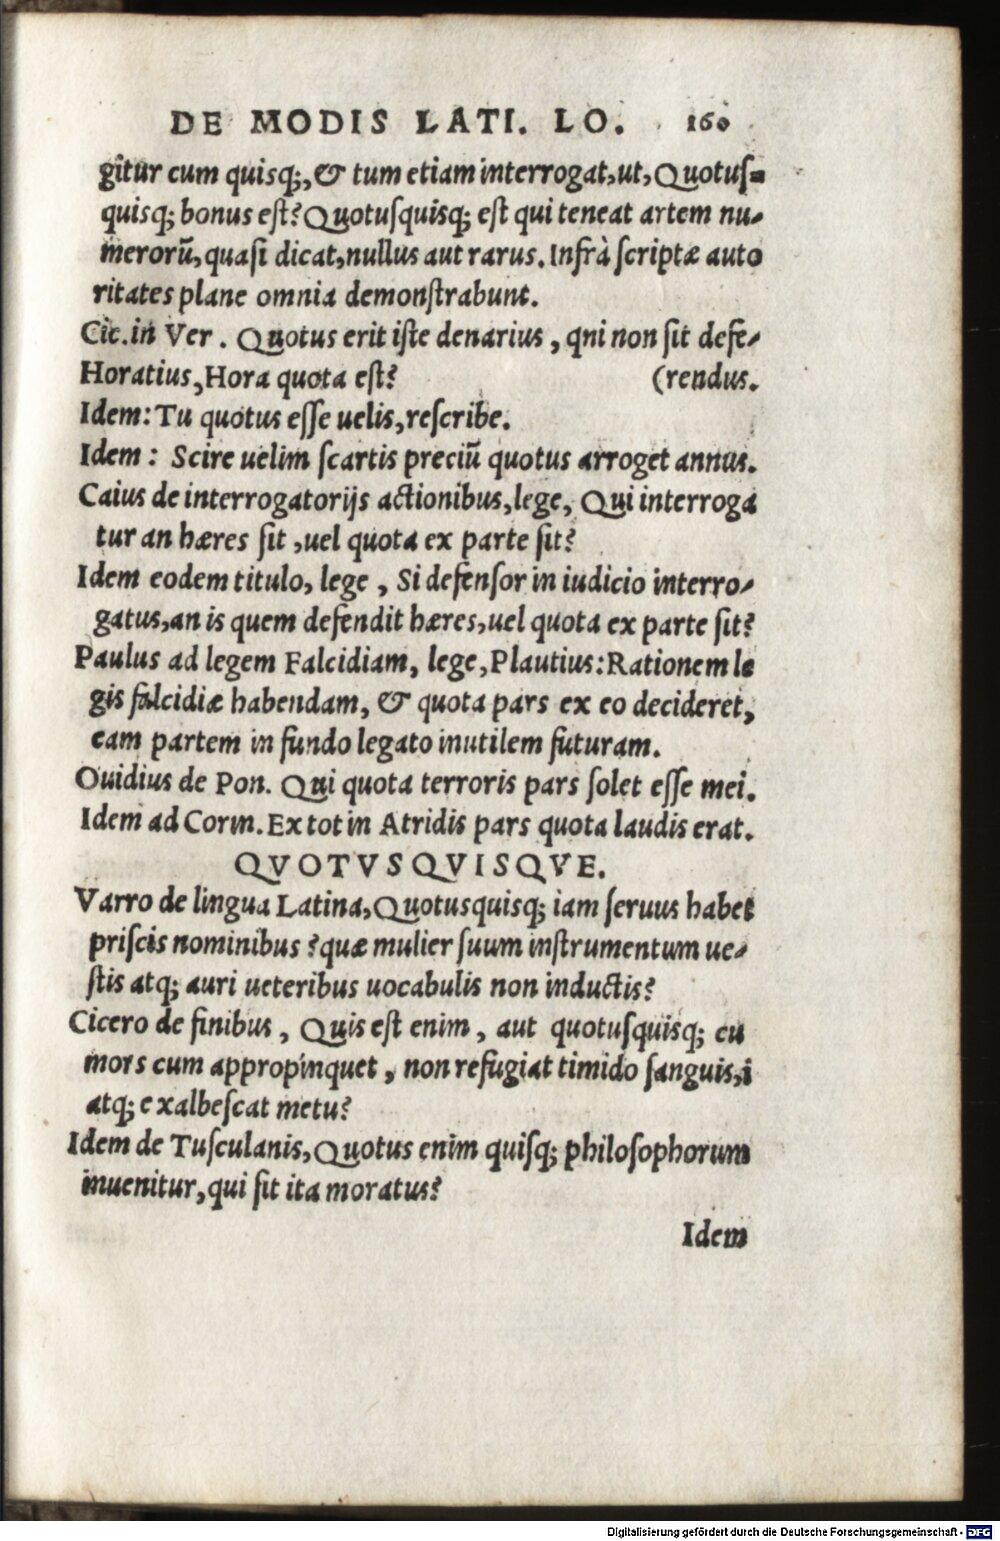 DE MODIS LATI. LO. 160
gitur cum quisq;, & tum etiam interrogat, ut, Quotuſ-
quisq; bonus eſt? Quotuſquisq; eſt qui teneat artem nu-
merorũ, quaſi dicat, nullus aut rarus. Infrà ſcriptæ auto
ritates plane omnia demonſtrabunt.
Cic. in Ver. Quotus erit iſte denarius, qni non ſit defe-
Horatius, Hora quota eſt? (rendus.
Idem: Tu quotus eſſe uelis, reſcribe.
Idem: Scire uelim ſcartis preciũ quotus arroget annus.
Caius de interrogatorijs actionibus, lege, Qui interroga
tur an hæres ſit, uel quota ex parte ſit?
Idem eodem titulo, lege, Si defenſor in iudicio interro-
gatus, an is quem defendit hæres, uel quota ex parte ſit?
Paulus ad legem Falcidiam, lege, Plautius: Rationem le
gis falcidiæ habendam, & quota pars ex eo decideret,
eam partem in fundo legato inutilem futuram.
Ouidius de Pon. Qui quota terroris pars ſolet eſſe mei.
Idem ad Corin. Ex tot in Atridis pars quota laudis erat.
QVOTVSQVISQVE.
Varro de lingua Latina, Quotusquisq; iam ſeruus habet
priſcis nominibus? quæ mulier ſuum inſtrumentum ue-
ſtis atq; auri ueteribus uocabulis non inductis?
Cicero de finibus, Quis eſt enim, aut quotuſquisq; cu
mors cum appropinquet, non refugiat timido ſanguis, i
atq; exalbeſcat metu?
Idem de Tuſculanis, Quotus enim quiſq; philoſophorum
inuenitur, qui ſit ita moratus?
Idem
Digitalisierung gefördert durch die Deutsche Forschungsgemeinschaft - DFG